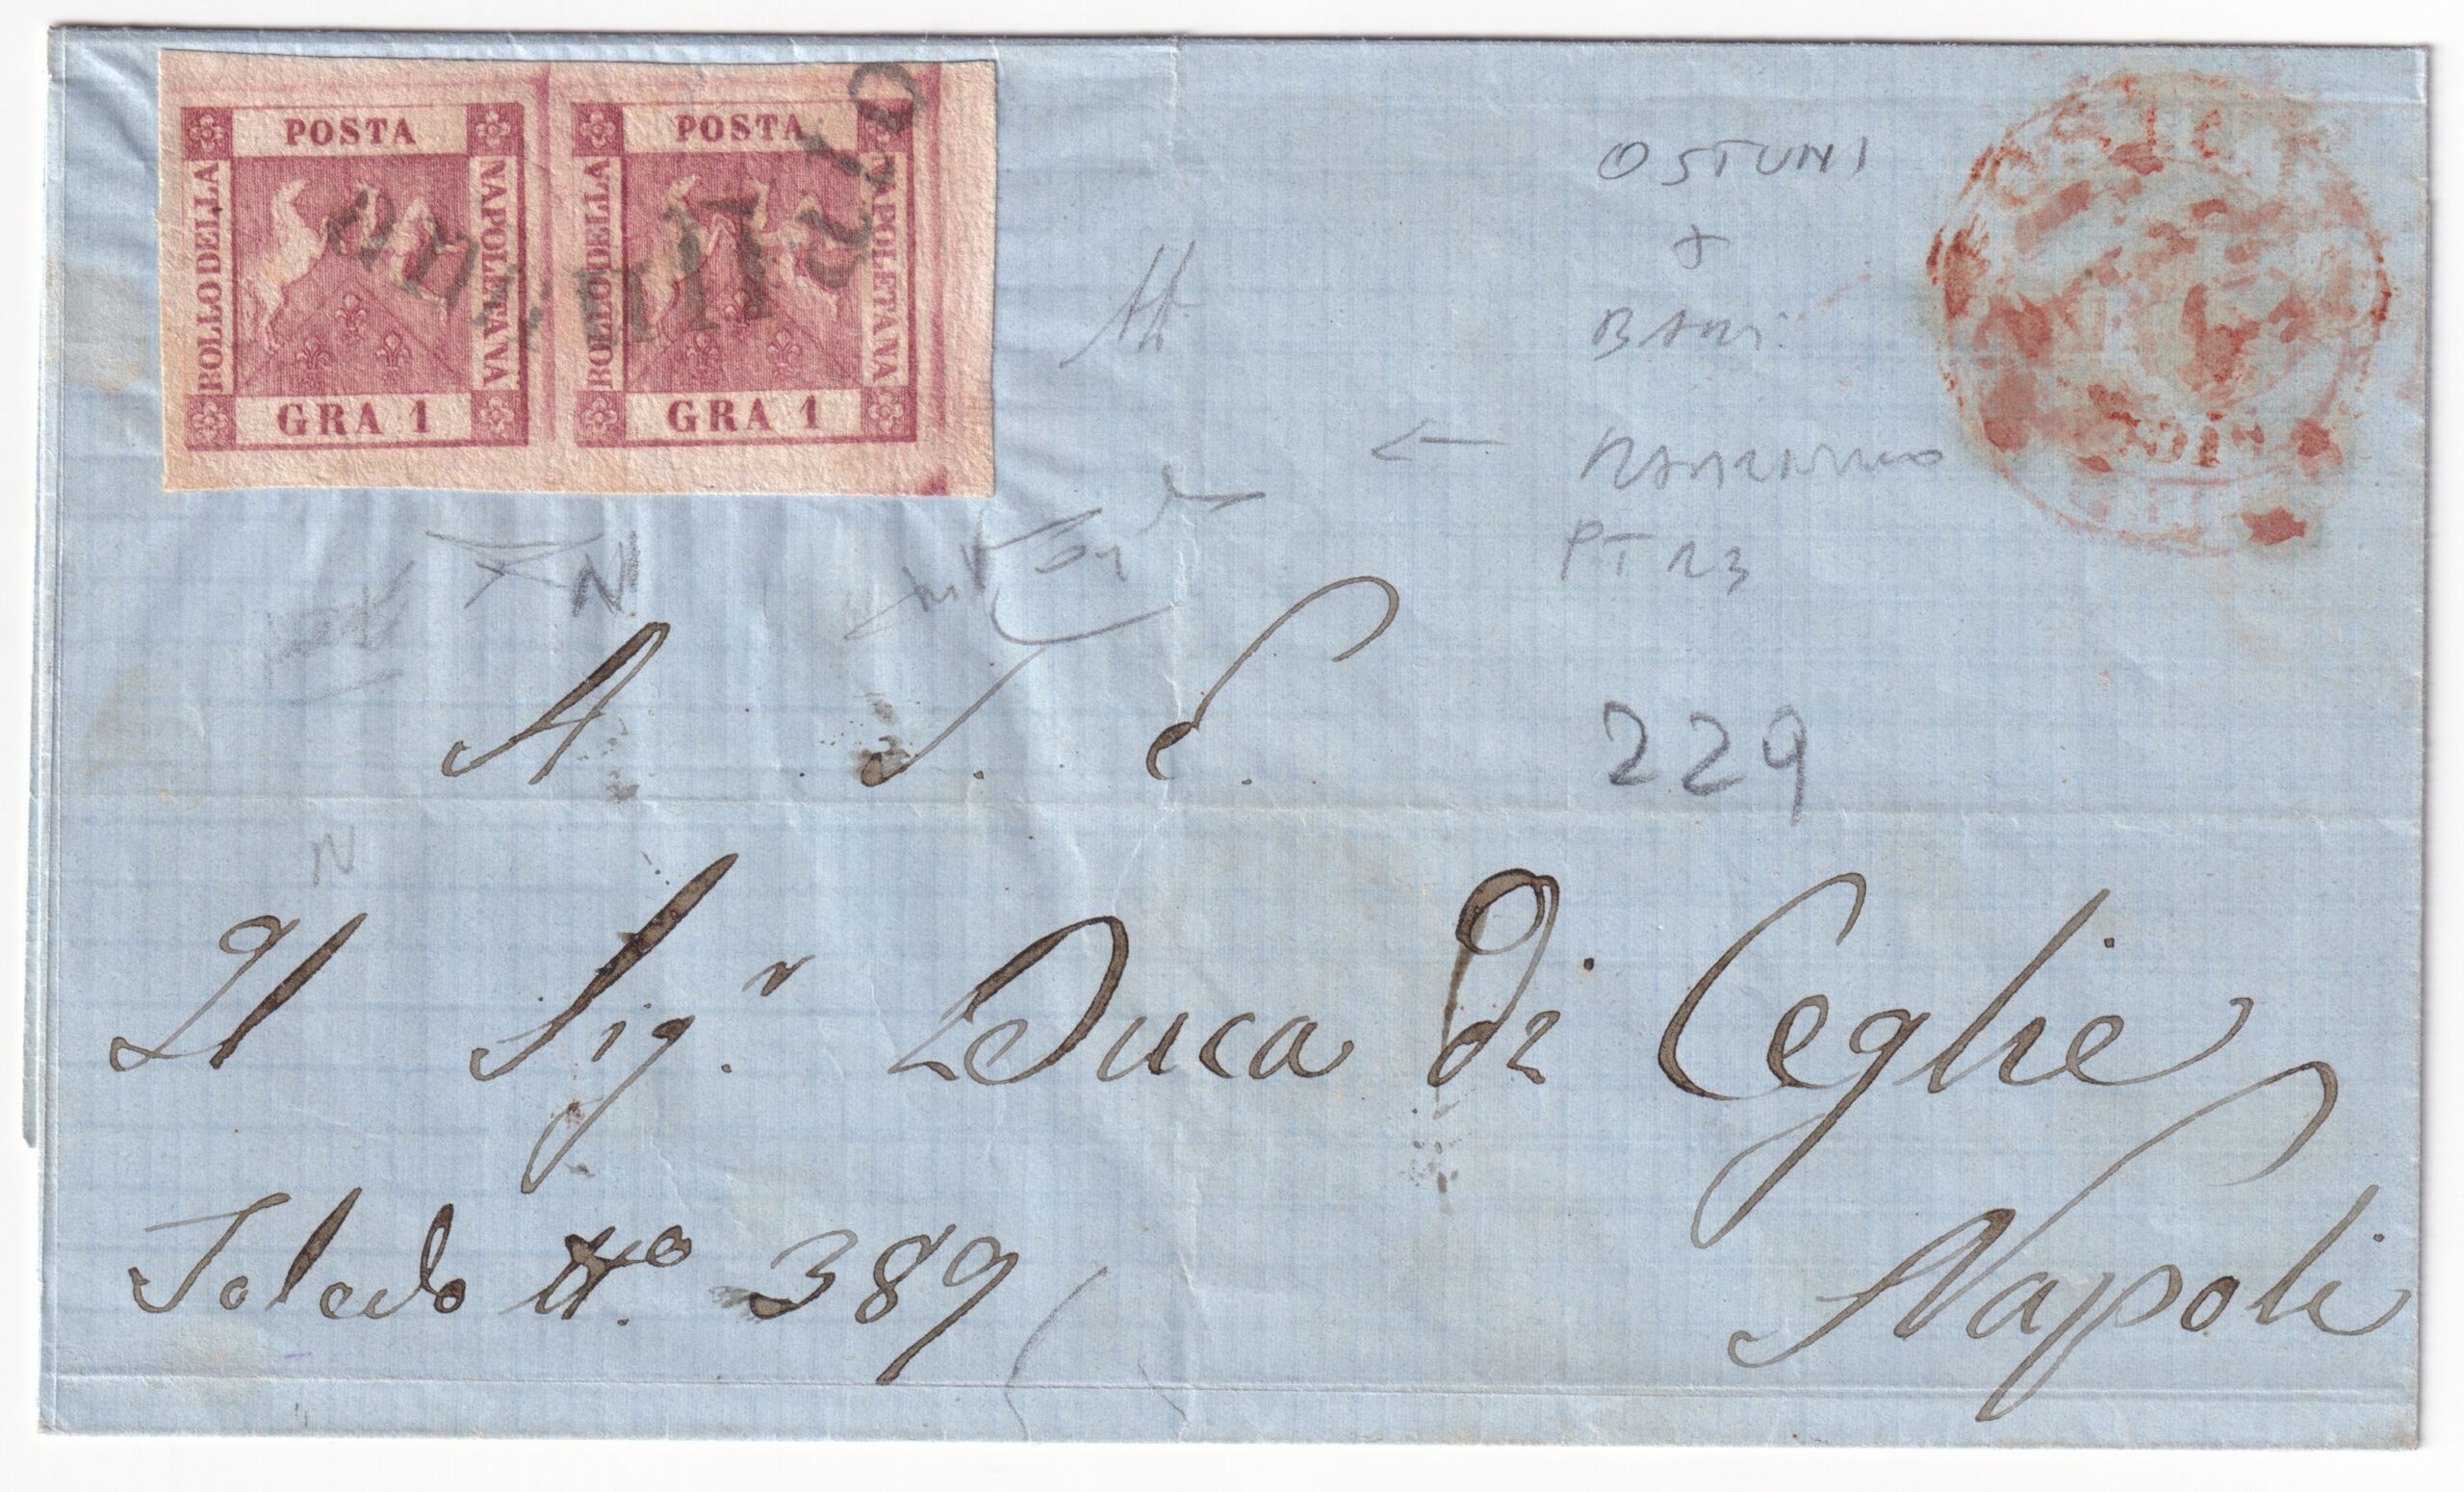 POSTA
ROLLO DELLA
NAPOLETANA
GRA 1
POSTA
ROLLO DELLA
NAPOLETANA
GRA 1
OSTUNI
BARI
PT R3
N
229
A S. E.
Il Sig.r Duca Di Ceglie
Toledo No. 389
Napoli